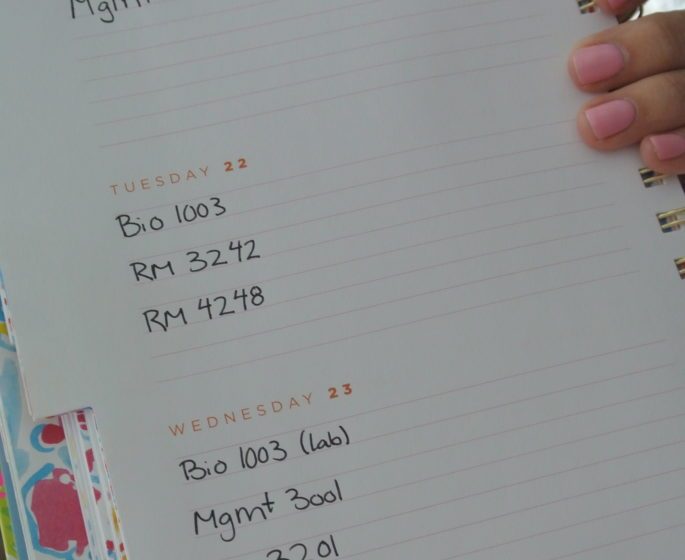 TUESDAY 22
Bio 1003
RM 3242
RM 4248
WEDNESDAY 23
Bio 1003 (lab)
Mgmt 3001
3201